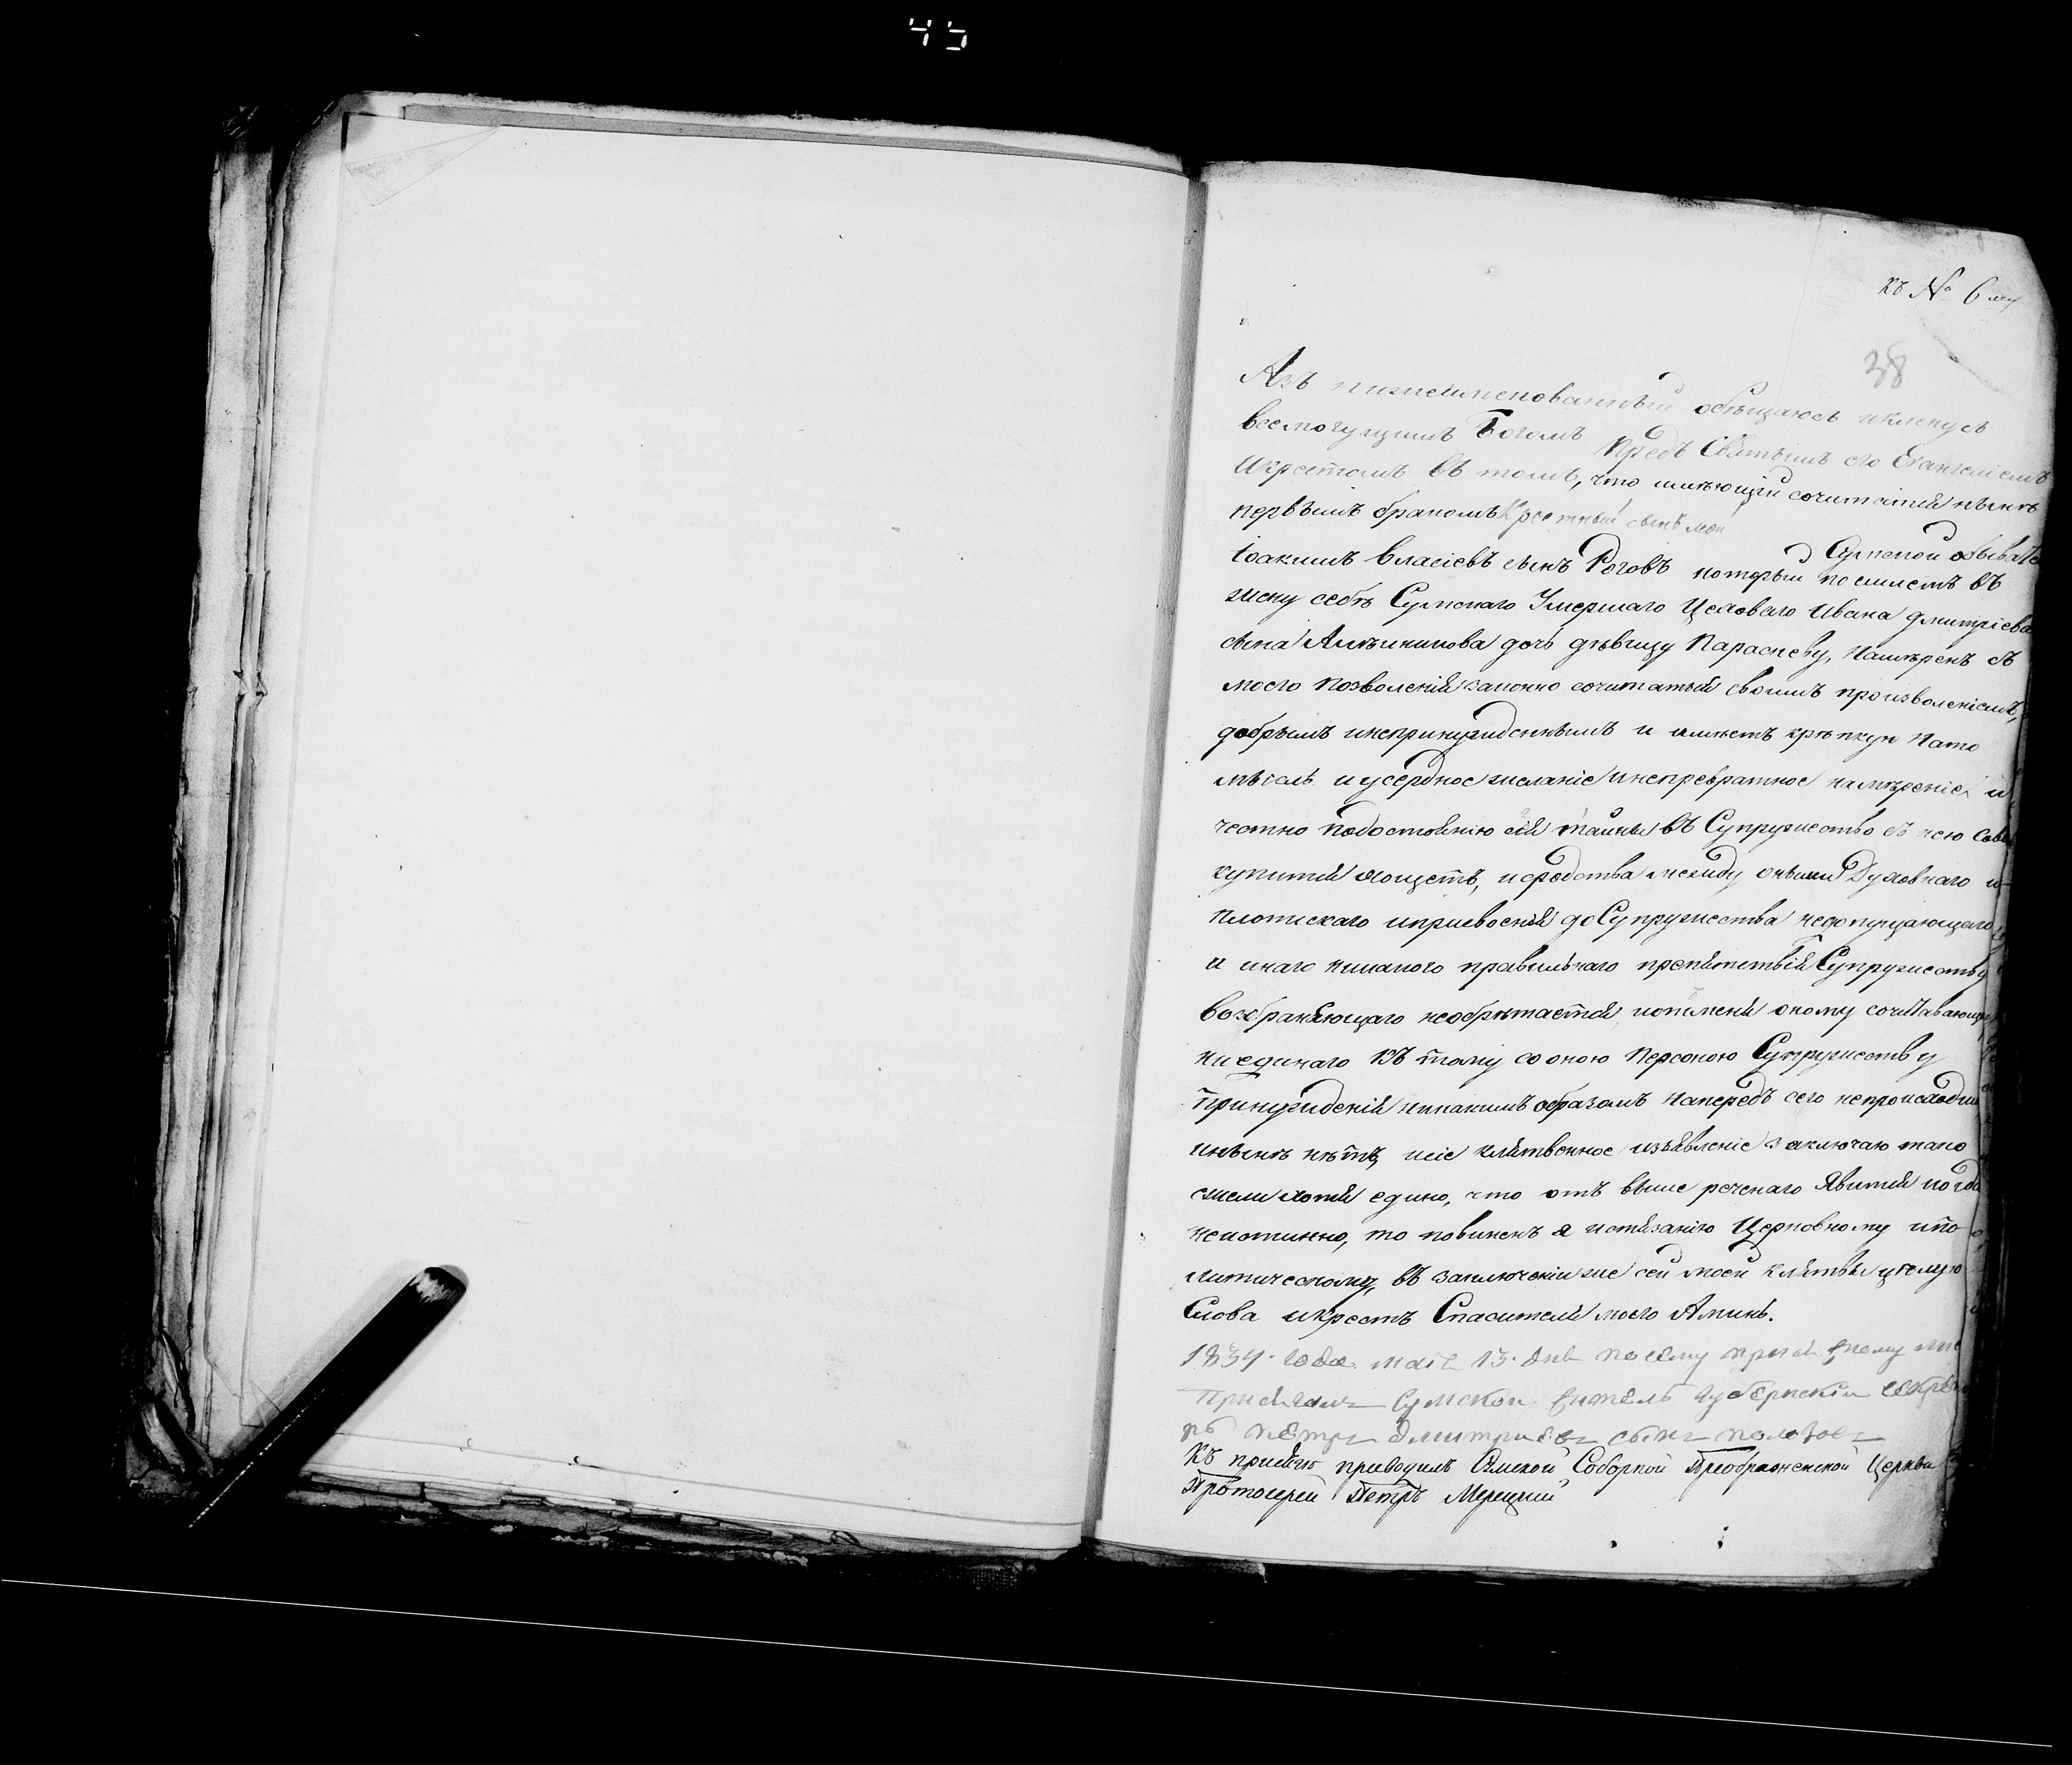 45
къ № 6му
38
Азъ нижеименованный обѣщаюсь иклянусь
всемогущимъ Богомъ предъ Святымъ его Евангелиемъ
икрестомъ въ томъ, что имѣющiй сочитатися нынѣ
первымъ бракомъ Крестный сынъ мой
Сумской обывате
Iоакимъ Власiевъ сынъ Роговъ который поемлетъ въ
жену себѣ Сумскаго Умершаго Цеховаго Ивана Дмитрiева
сына дочь дѣвицу Параскеву, Намѣренъ съ
моего позволенiя законно сочитатися своимъ произволенiемъ,
добрымъ инепринужденнымъ и имѣетъ крѣпкую Нато
мысль и усердное желанiе инепревратное намѣренiе и
честно подостоянiю сея тайны въ Супружество съ нею Сово
купитися хощетъ, исродства между оными Духовнаго и
плотискаго иприсвоенiя доСупружества недопущающаго
и инаго никакого правильнаго препятствiя Супружеству
возбраняющаго необрѣтается, оному сочитавающ
ниединаго къ тому со оною Персоною Супружеству
Принужденiя никакимъ образомъ Напередъ сего непроисходи
инынѣ нѣтъ, исiе клятвенное изъявленiе заключаю тако
ежели хотя едино, что отъ выше реченаго Явится когда
неистинно, то повиненъ я истязанiю Церковному ипо
литическому, въ заключенiи же сей моей клятвы цѣлую
Слова икрестъ Спасителя моего Аминь.
1834 года маiя 13 дня посему присяжному ли
Присягалъ Сумской житель Губернскiй секрета
ръ Петръ Дмитриевъ сынъ
Къ присягѣ приводилъ Сумской Соборной Преображенской Церкви
Протоиерей Петръ